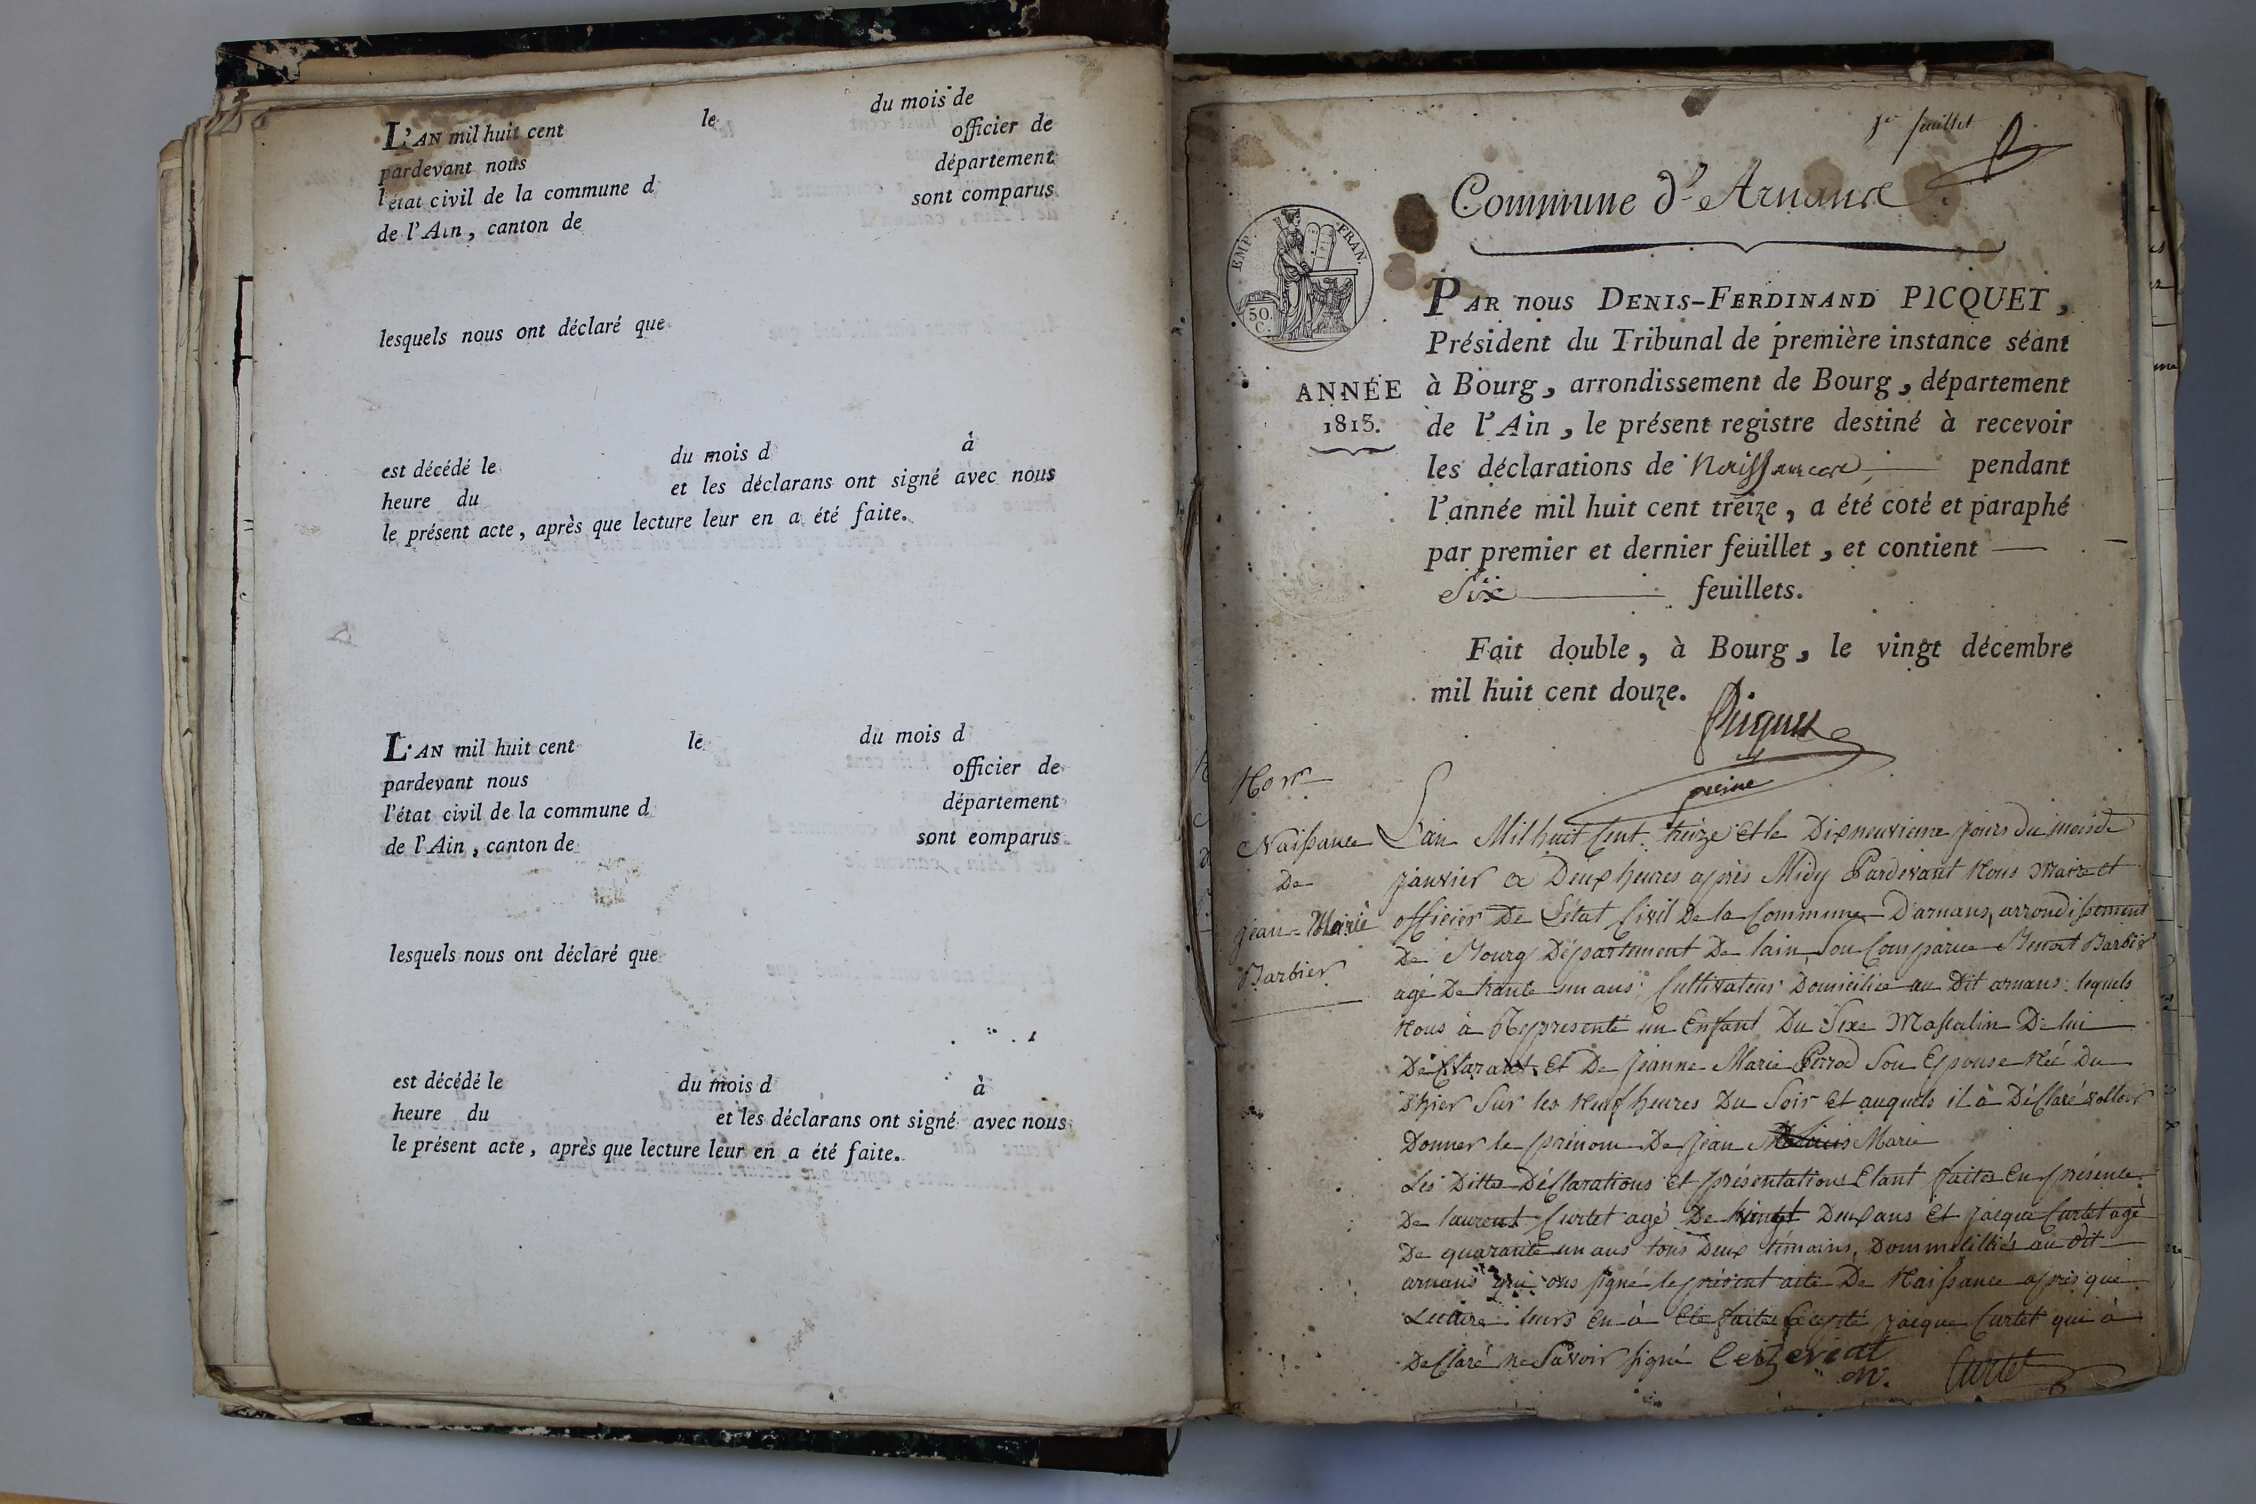 L'AN mil huit cent le du mois de
pardevant nous officier de
l'état civil de la commune d département
de l'Ain, canton de sont comparus
lesquels nous ont déclaré que
est décédé le du mois d à
heure du et les déclarans ont signé avec nous
le présent acte, après que lecture leur en a été faite.
L'AN mil huit cent le du mois d
pardevant nous officier de
l'état civil de la commune d département
de l'Ain, canton de sont comparus
lesquels nous ont déclaré que
est décédé le du mois d à
heure du et les déclarans ont signé avec nous
le présent acte, après que lecture leur en a été faite.
1er feuillet
Commune d'Arnans
EMP. FRAN.
50.
C.
PAR nous DENIS-FERDINAND PICQUET,
Président du Tribunal de première instance séant
ANNÉE
1813.
à Bourg, arrondissement de Bourg, département
de l'Ain, le présent registre destiné à recevoir
les déclarations de Naissances pendant
l'année mil huit cent treize, a été coté et paraphé
par premier et dernier feuillet, et contient
Six feuillets.
Fait double, à Bourg, le vingt décembre
mil huit cent douze.
Picquet
Naissance
De
jean-Marie
Barbier
L'an Mil huit Cent treize et le Dixneuvieme jours du mois de
janvier a Deux heures après Midy Pardevant Nous Maire et
officier De L'état Civil De la Commune D'arnans, arrondissement
De Bourg Département De lain, Son Comparue Benoit Barbier
agé De trante un ans Cultivateur Domicilié au Dit arnans lequels
Nous à Representé un Enfant Du Sexe Masculin De lui
Déclarant Et De Jeanne Marie Perrod Son Epouse Née Du
D'hier Sur les Neuf heures Du Soir Et auquels il à Déclaré volloir
Donner le prénom De Jean Marie
Les Dittes Déclarations Et présentations Etant faites En présence
De laurent Curtet agé De vingt Deux ans Et jacque Curtet agé
De quarante un ans tous Deux témoins, Dommeiliés au Dit
arnans qui ons signé le présent acte De Naissance après que
Lecture leurs En à Eté faite Excepté jacque Curtet qui à
Declaré ne Savoir signé
Curtet